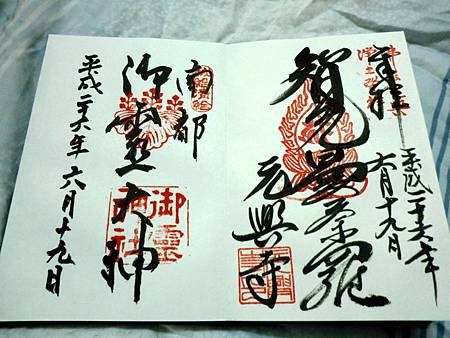 奉拝
平成二十六年
六月十九日
智光曼荼羅
元興寺
南都
御霊大神
御霊神社
平成二六年六月十九日